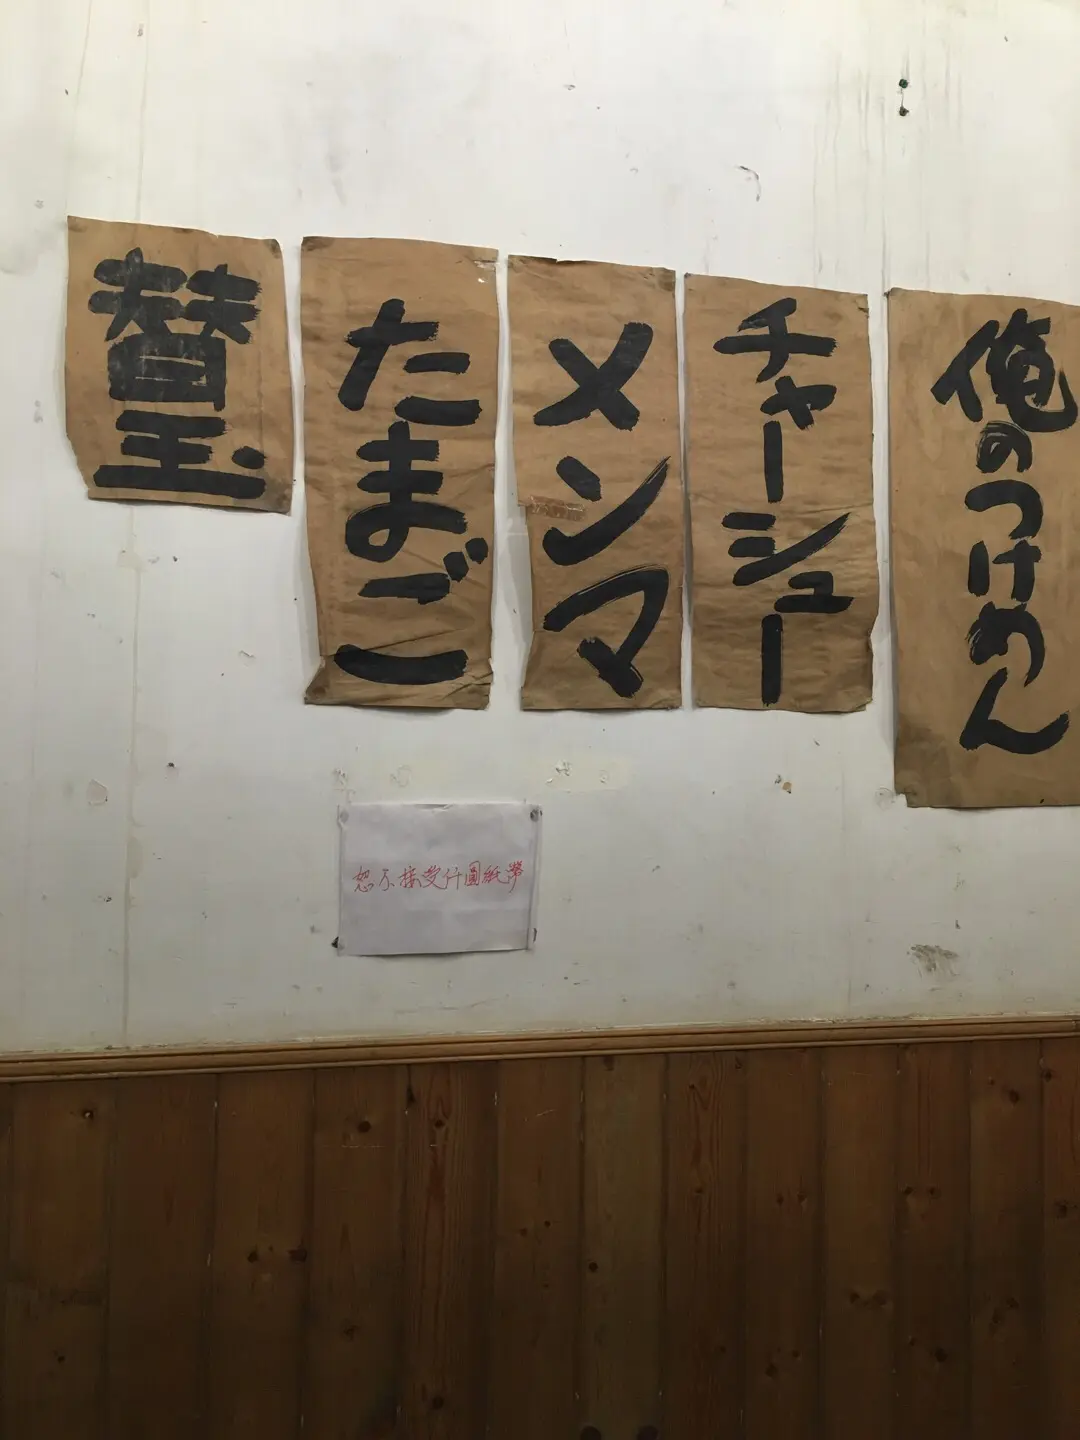 俺のつけめん
チャーシュー
メンマ
たまご
替玉
恕不接受仟圓紙幣